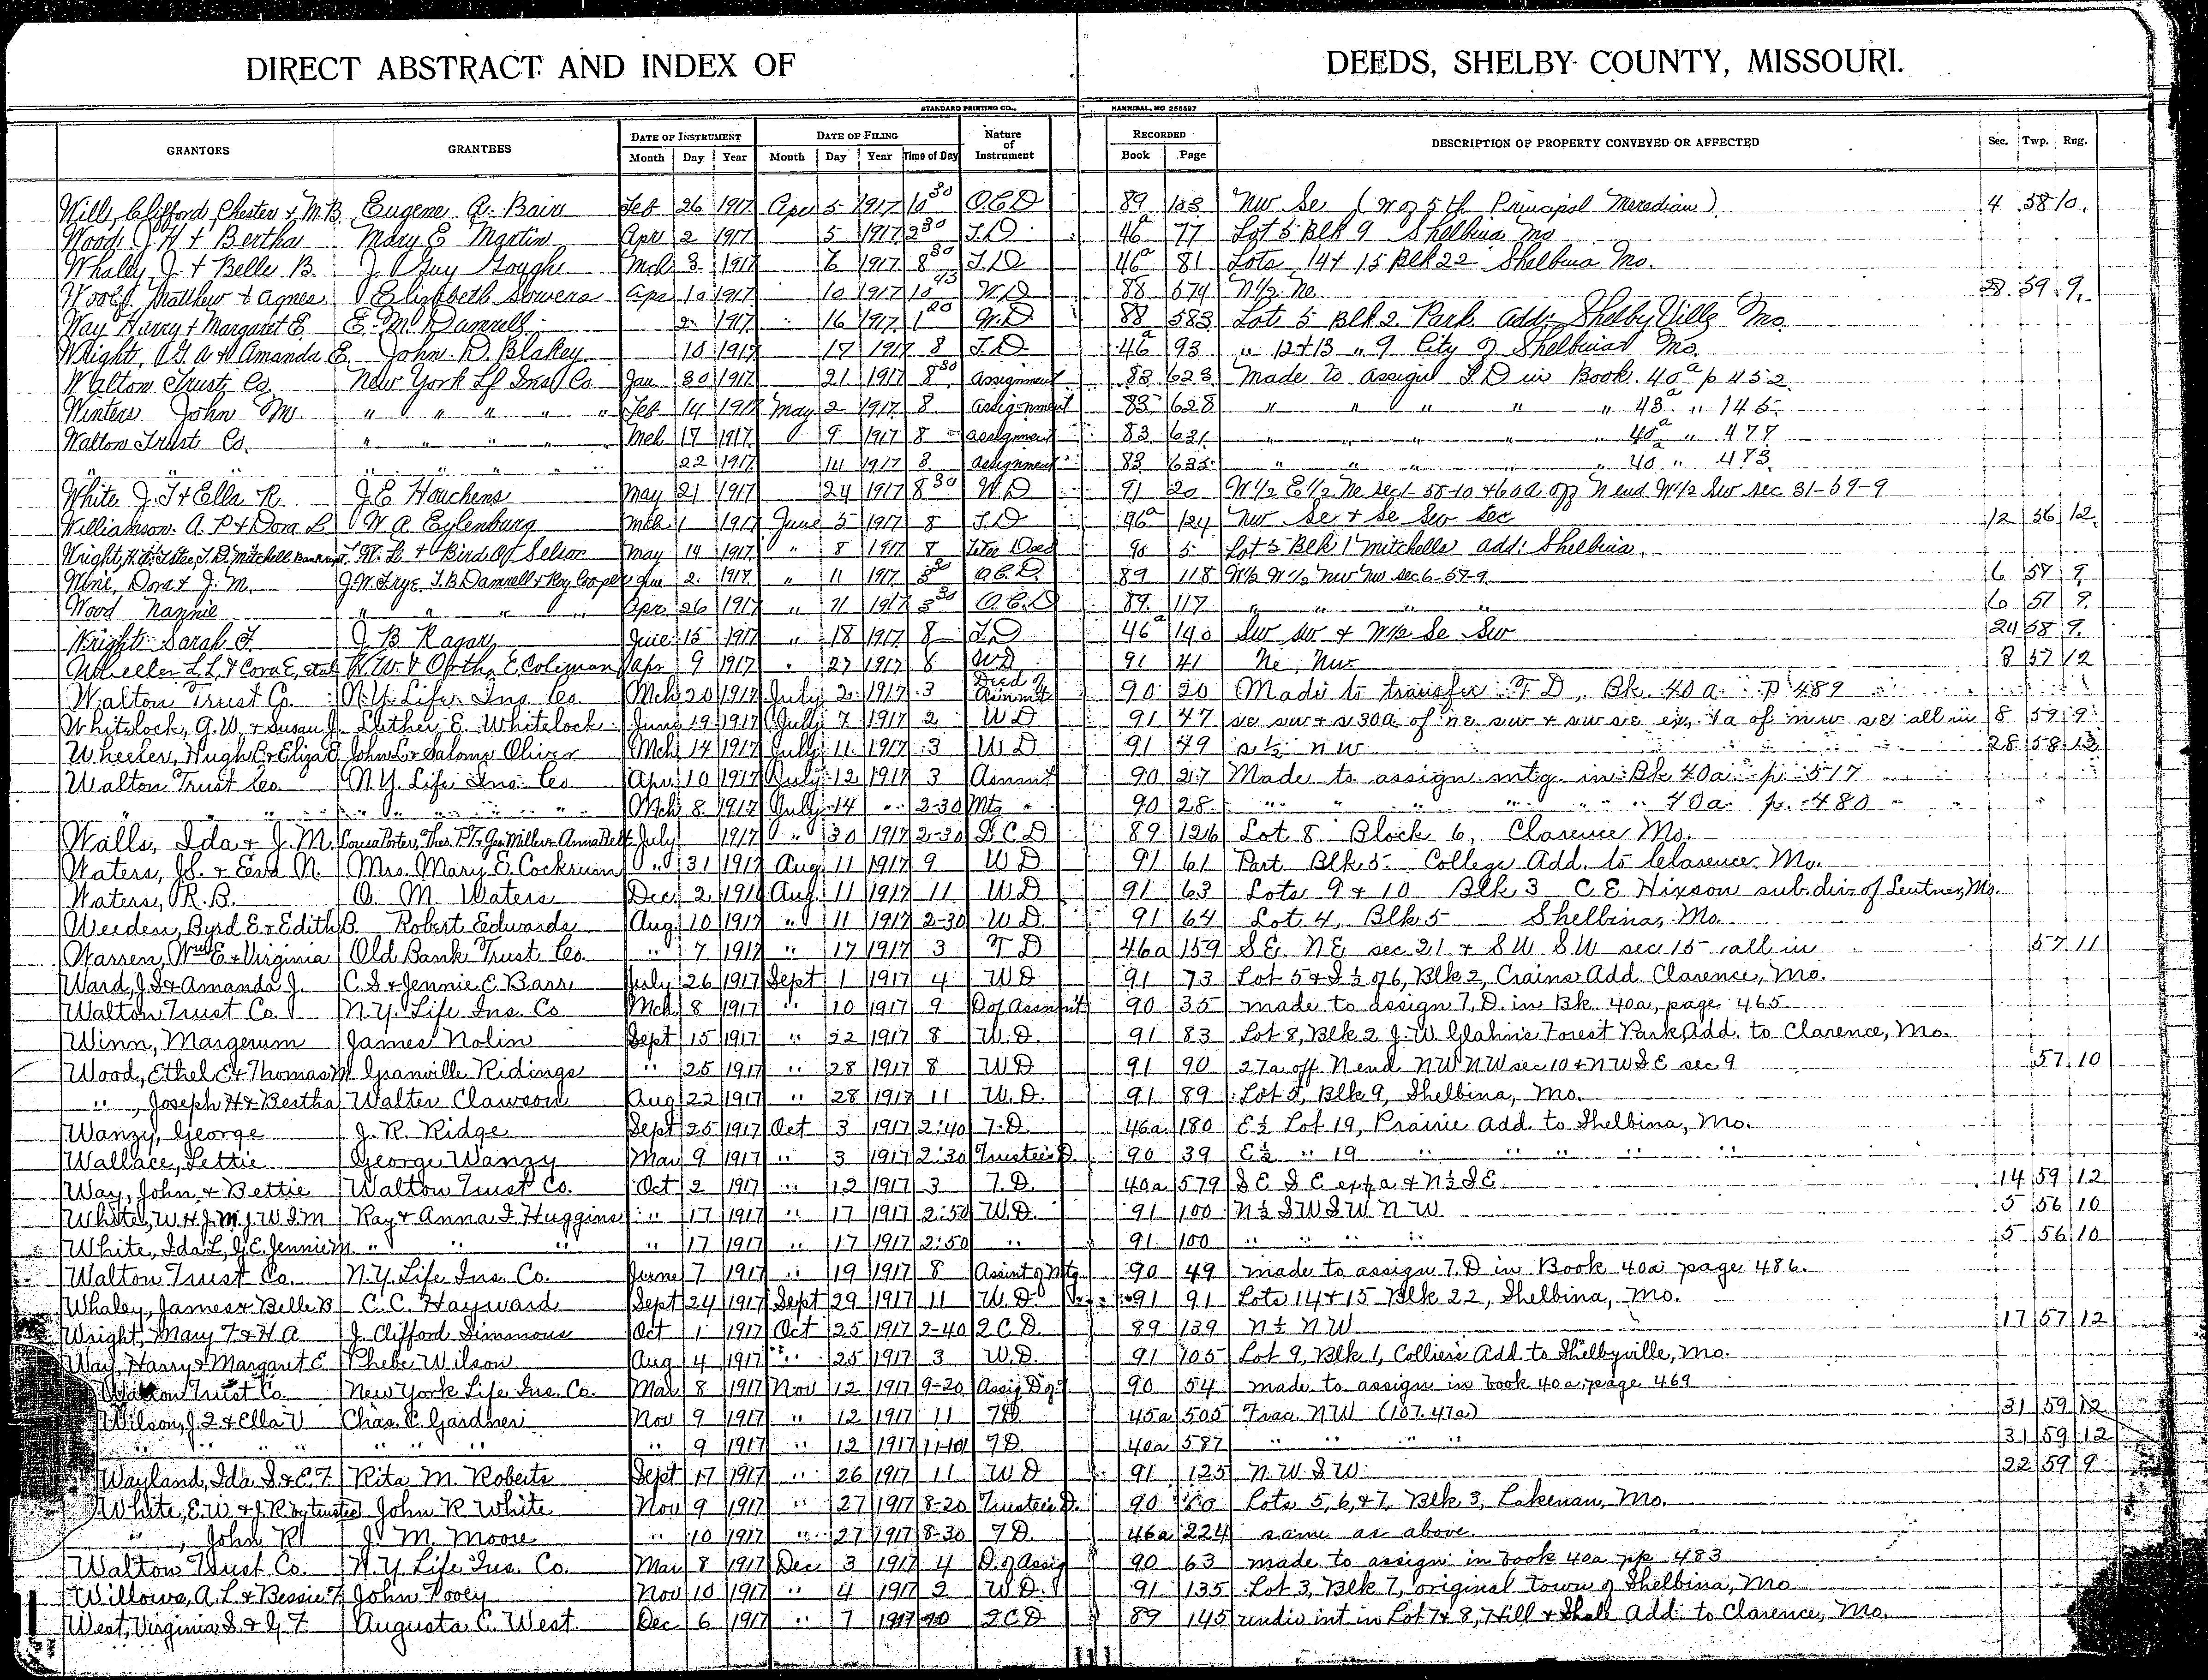 DIRECT ABSTRACT AND INDEX OF DEEDS, SHELBY COUNTY, MISSOURI.
STANDARD PRINTING CO., HANNIBAL, MO. 256897
GRANTORS GRANTEES DATE OF INSTRUMENT Month Day Year DATE OF FILING Month Day Year Time of Day Nature of Instrument RECORDED Book Page DESCRIPTION OF PROPERTY CONVEYED OR AFFECTED Sec. Twp. Rng.
Will, Clifford, Chester & M.B. Eugene A. Bain Feb 26 1917 Apr 5 1917 10 30 Q.C.D 89 103 NW Se (W of 5th Principal Meredian) 4 58 10
Wood, J.H & Bertha Mary E Martin Apr 2 1917 5 1917 2 30 T.D 46a 77 Lot 5 Blk 9 Shelbina Mo
Whaley J. & Belle B. J. Guy Gough Mch 3 1917 6 1917 8 30 T.D 46a 81 Lots 14 & 15 Blk 22 Shelbina Mo.
Woolf, Matthew & Agnes Elizabeth Sowers Apr 10 1917 10 1917 10 43 W.D 88 574 N 1/2 Ne 28 59 9
Way Harry & Margaret E. E. M. Damrell 2 1917 16 1917 1 20 W.D 88 583 Lot 5 Blk 2 Park Add: Shelbyville Mo.
Wright, G A & Amanda E. John D. Blakey 10 1917 17 1917 8 T.D 46a 93 " 12 & 13 " 9 City of Shelbina Mo.
Walton Trust Co. New York Lf Ins Co Jan 30 1917 21 1917 8 30 Assignment 83 623 Made to assign T.D in Book 40a p 452
Winters John M. " " " " " Feb 14 1917 May 2 1917 8 Assignment 83 628 " " " " " 43a " 145
Walton Trust Co. " " " " Mch 17 1917 9 1917 8 Assignment 83 631 " " " " " 40a " 477
" " " " " " " 22 1917 14 1917 8 Assignment 83 635 " " " " " 40a " 473
White J.T & Ella R. J.E Houchens May 21 1917 24 1917 8 30 W.D 91 20 W 1/2 E 1/2 Ne sec 1-58-10 & 60a off N end W 1/2 Sw sec 31-59-9
Williamson A. P & Dora L W. A. Eylenburg Mch 1 1917 June 5 1917 8 T.D 46a 124 NW Se & Se Sw sec 12 56 12
Wright, Tstee, T.D. Mitchell Bankrupt W. L. & Bird Of Selsor May 14 1917 " 8 1917 8 Tstee Deed 90 5 Lot 5 Blk 1 Mitchells add: Shelbina
Dora & J. M. J.W Frye, T.B Damrell & Roy Cooper June 2 1917 " 11 1917 3 30 Q.C.D. 89 118 W 1/2 W 1/2 NW NW sec 6-57-9 6 57 9
Wood Nannie " " " " Apr 26 1917 " 11 1917 3 30 Q.C.D 89 117 " " " " 6 57 9
Wright Sarah F. J. B Ragar June 15 1917 " 18 1917 8 T.D 46a 140 Sw Sw & W 1/2 Se Sw 24 58 9
Wheeler L L & Cora E, etal W.W. & Ortha E Coleman Apr 9 1917 " 27 1917 8 WD 91 41 Ne NW 3 57 12
Walton Trust Co. N.Y. Life Ins Co Mch 20 1917 July 2 1917 3 Deed of Assnmt 90 20 Made to transfer T D, Bk 40a p 489
Whitelock, G.W. & Susan J. Luther E. Whitelock June 19 1917 July 7 1917 2 WD 91 47 se sw & s 30a of ne sw & sw se ex. 1a of nw se all in 8 59 9
Wheeler, Hugh C & Eliza E John L & Salome Oliver Mch 14 1917 July 11 1917 3 WD 91 49 s ½ nw 28 58 12
Walton Trust Co N.Y. Life Ins Co Apr 10 1917 July 12 1917 3 Assnmt 90 27 Made to assign mtg. in Bk 40a p. 517
" " " " " " " Mch 8 1917 July 14 " 2-30 Mtg " 90 28 " " " " " " 40a p. 480
Walls, Ida & J. M. Louisa Porter, Thos. P.T. Geo Miller & Anna Belt July 1917 " 30 1917 2-30 Q.C.D 89 126 Lot 8 Block 6, Clarence Mo.
Waters, J.S. & Eva N. Mrs. Mary E. Cockrum " 31 1917 Aug 11 1917 9 WD 91 61 Part Blk 5 College Add. to Clarence Mo.
Waters, R. B. O. M. Waters Dec 2 1916 Aug. 11 1917 11 WD 91 63 Lots 9 & 10 Blk 3 C E Hixson sub-div. of Lentner, Mo.
Weeden, Byrd E. & Edith B. Robert Edwards Aug 10 1917 " 11 1917 2-30 WD. 91 64 Lot 4, Blk 5 Shelbina, Mo
Warren, Wm E & Virginia Old Bank Trust Co. " 7 1917 " 17 1917 3 T D 46a 159 SE NE sec 21 & SW SW sec 15 all in 57 11
Ward, J.S & Amanda J. C. S & Jennie E Barr July 26 1917 Sept 1 1917 4 WD 91 73 Lot 5 & S ½ of 6, Blk 2, Crains Add. Clarence, Mo.
Walton Trust Co. N.Y. Life Ins. Co Mch 8 1917 " 10 1917 9 D of Assnmt 90 35 made to assign T.D. in Bk. 40a, page 465
Winn, Margerum James Nolin Sept 15 1917 " 22 1917 8 W.D. 91 83 Lot 8, Blk 2 J.W. Glahn's Forest Park Add. to Clarence, Mo.
Wood, Ethel E & Thomas M Granville Ridings " 25 1917 " 28 1917 8 WD 91 90 27a off N end NW NW sec 10 & NW SE sec 9 57 10
" , Joseph H & Bertha Walter Clawson Aug 22 1917 " 28 1917 11 W.D. 91 89 Lot 5, Blk 9, Shelbina, Mo.
Wanzy, George J. R. Ridge Sept 25 1917 Oct 3 1917 2:40 T.D. 46a 180 E ½ Lot 19, Prairie Add. to Shelbina, Mo.
Wallace, Lettie George Wanzy May 9 1917 " 3 1917 2:30 Trustee's D. 90 39 E ½ " 19 " " " " "
Way, John & Bettie Walton Trust Co. Oct 2 1917 " 12 1917 3 T.D. 40a 579 SE SE & N ½ SE 14 59 12
White, W H J M J W S M Ray & Anna F Huggins " 17 1917 " 17 1917 2:50 W.D. 91 100 N ½ SW SW NW 5 56 10
White, Ida L, G E. Jennie M. " " " " 17 1917 " 17 1917 2:50 " 91 100 " " " " 5 56 10
Walton Trust Co. N.Y. Life Ins. Co. June 7 1917 " 19 1917 8 Assint of Mtg 90 49 made to assign T.D in Book 40a page 486.
Whaley, James & Belle B C. C. Hayward Sept 24 1917 Sept 29 1917 11 W.D. 91 91 Lots 14 & 15 Blk 22, Shelbina, Mo.
Wright, Mary F & H A J. Clifford Simmons Oct 1 1917 Oct 25 1917 2-40 Q C D. 89 139 N ½ NW 17 57 12
Way, Harry & Margaret E Phebe Wilson Aug 4 1917 " 25 1917 3 W.D. 91 105 Lot 9, Blk 1, Collier's Add. to Shelbyville, Mo.
Walton Trust Co. New York Life Ins. Co. Mar 8 1917 Nov 12 1917 9-20 Assig D of 90 54 made to assign in book 40a, page 469
Wilson, J Q & Ella V Chas. C Gardner Nov 9 1917 " 12 1917 11 TD. 45a 505 Frac. NW (107.47a) 31 59 12
" " " " " " " " " 9 1917 " 12 1917 11-10 TD. 40a 587 " " " " 31 59 12
Wayland, Ida S & E. F Rita M. Roberts Sept 17 1917 " 26 1917 11 WD 91 125 N.W. SW. 22 59 9
White, E.W. & J.R by trustee John R White Nov 9 1917 " 27 1917 8-20 Trustee's D. 90 60 Lots 5, 6, & 7, Blk 3, Lakenan, Mo.
" , John R J. M. Moore " 10 1917 " 27 1917 8-30 TD. 46a 224 same as above.
Walton Trust Co. N.Y. Life Ins. Co. Mar 8 1917 Dec 3 1917 4 D. of Assig 90 63 made to assign in book 40a pp 483
Willows, A. L & Bessie F John Povey Nov 10 1917 " 4 1917 2 W.D. 91 135 Lot 3, Blk 7, original town of Shelbina, Mo
West, Virginia S. & G. F. Augusta C. West. Dec 6 1917 " 7 1917 Q C D 89 145 undiv int in Lot 7 & 8, Hill & Shale Add. to Clarence, Mo.